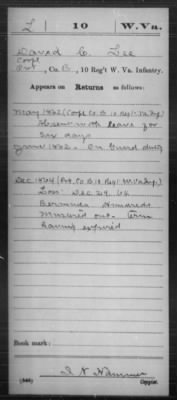 L | 10 | W.Va.
David C. Lee
Corpl
Pvt, Co. B, 10 Reg't W. Va. Infantry.
Appears on Returns as follows:
May 1862 (Corpl Co B 10 Regt W.Va Inf)
Absent with leave for
six days
June 1862. On Guard duty
Dec 1864 (Pvt. Co B 10 Regt W.Va Inf.)
Loss Dec 29, 64
Bermuda Hundreds
Mustered out. Term
having expired
Book mark:
(546)
Hammer
Copyist.